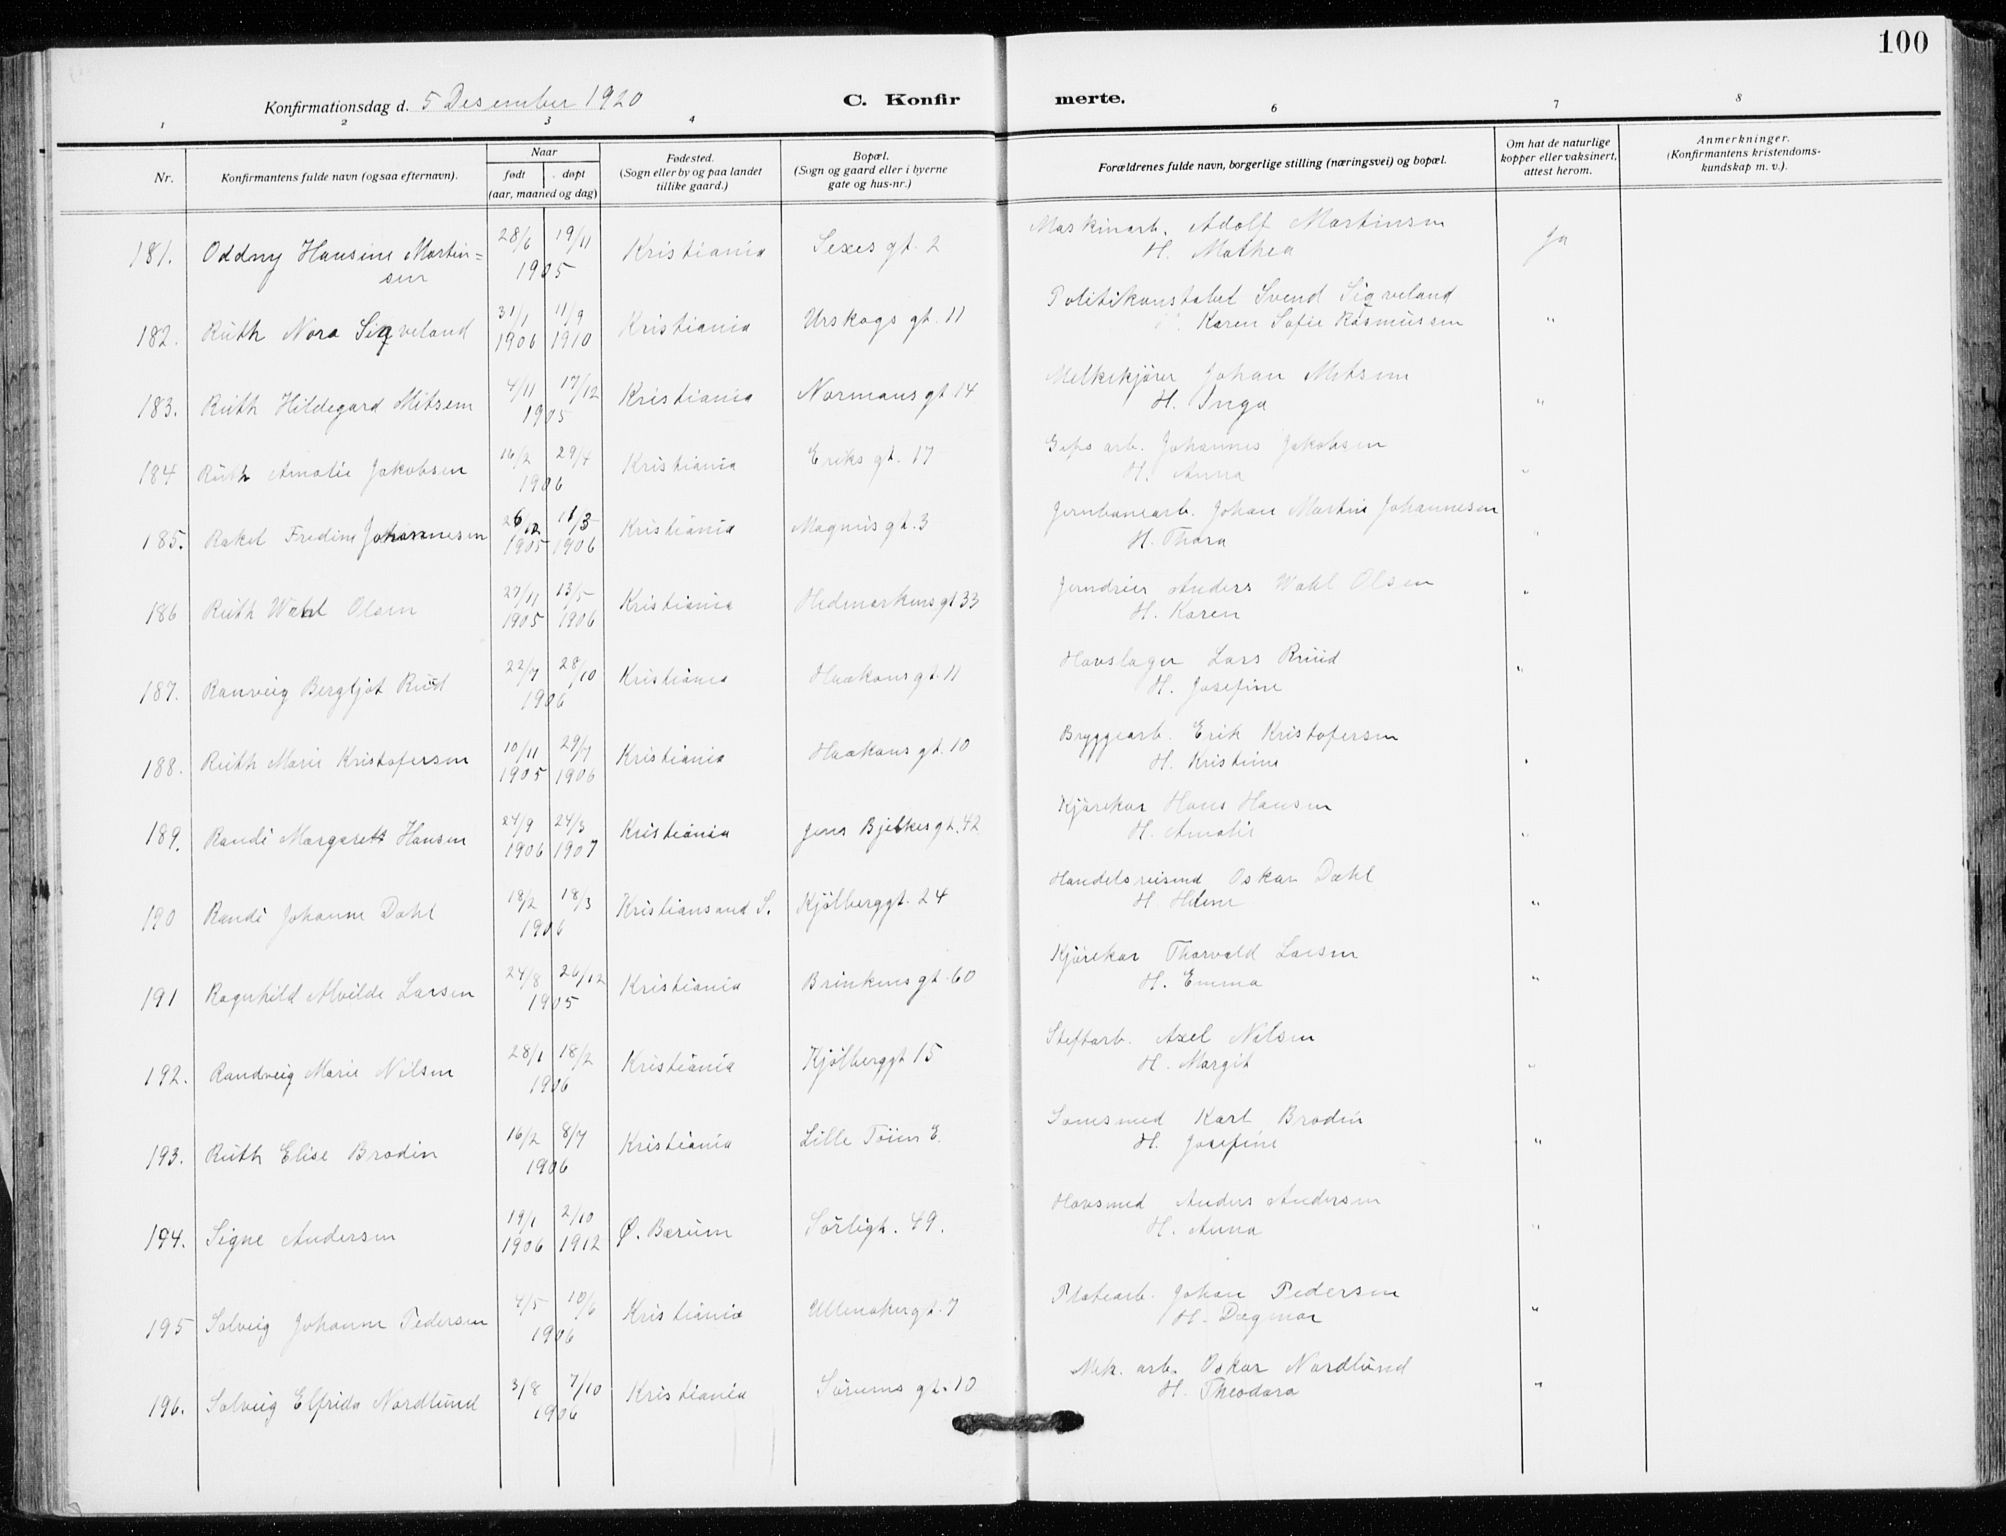 100
Konfirmationsdag d. 5 Desember 1920
C. Konfirmerte.
1 2 3 4 6 7 8
Nr.
Konfirmantens fulde navn (ogsaa efternavn).
Naar
født døpt
(aar, maaned og dag)
Fødested.
(Sogn eller by og paa landet
tillike gaard.)
Bopæl.
(Sogn og gaard eller i byerne
gate og hus-nr.)
Forældrenes fulde navn, borgerlige stilling (næringsvei) og bopæl.
Om hat de naturlige
kopper eller vaksinert,
attest herom.
Anmerkninger.
(Konfirmantens kristendoms-
kundskap m. v.).
181. Oddny Hansine Martin= 28/6 19/11 Kristiania Sexes gt. 2 Maskinarb. Adolf Martinsen Ja
sen 1905 H. Mathea
182. Ruth Nora Sigveland 31/1 11/9 Kristiania Urskogs gt. 11 Politikonstabel Svend Sigveland
1906 1910 Karen Sofie Rasmussen "
183. Ruth Hildegard Mitsem 4/11 17/12 Kristiania Normans gt 14 Melkekjører Johan Mitsem
1905 H. Inga "
184 Ruth Amalie Jakobsen 16/2 29/4 Kristiania Eriks gt. 17 Gips arb. Johannes Jakobsen
1906 H. Anna "
185. Rakel Fredine Johannesen 26/12 11/3 Kristiania Magnus gt. 3 Jernbanearb. Johan Martin Johannesen
1905 1906 H. Thora "
186 Ruth Wahl Olsen 27/11 13/5 Kristiania Hedmarkens gt 33 Jerndreier Anders Wahl Olsen
1905 1906 H. Karen "
187. Ranveig Bergljot Ruud 22/7 28/10 Kristiania Haakons gt. 11 Hovslager Lars Ruud "
1906 H. Josefine
188. Ruth Marie Kristofersen 10/11 29/7 Kristiania Haakons gt. 10 Bryggearb. Erik Kristofersen
1905 1906 H. Kristine "
189. Randi Margarett Hansen 24/9 24/3 Kristiania Jens Bjelkes gt. 42 Kjørekar Hans Hansen
1906 1907 H. Amalie "
190 Randi Johanne Dahl 18/2 18/3 Kristiansand S. Kjølberggt. 24 Handelsreisend Oskar Dahl
1906 H. Helene "
191 Ragnhild Alvilde Larsen 24/8 26/12 Kristiania Brinkens gt. 60 Kjørekar Thorvald Larsen
1905 H. Emma "
192. Randveig Marie Nilsen 28/1 18/2 Kristiania Kjølberggt 15 Axel Nilsen
1906 H. Margit "
193. Ruth Elise Brodin 16/2 8/7 Kristiania Lille Tøien E. Karl Brodin
1906 H. Josefine "
194. Signe Andersen 19/1 2/10 Ø. Bærum Sørligt. 49. Hovsmed Anders Andersen
1906 1912 H. Anna "
195 Solveig Johanne Pedersen 4/5 10/6 Kristiania Ullensaker gt. 7 Platearb. Johan Pedersen
1906 H. Dagmar "
196. Solveig Elfrida Nordlund 3/8 7/10 Kristiania Sørums gt. 10 Mek. arb. Oskar Nordlund
1906 H. Theodora "